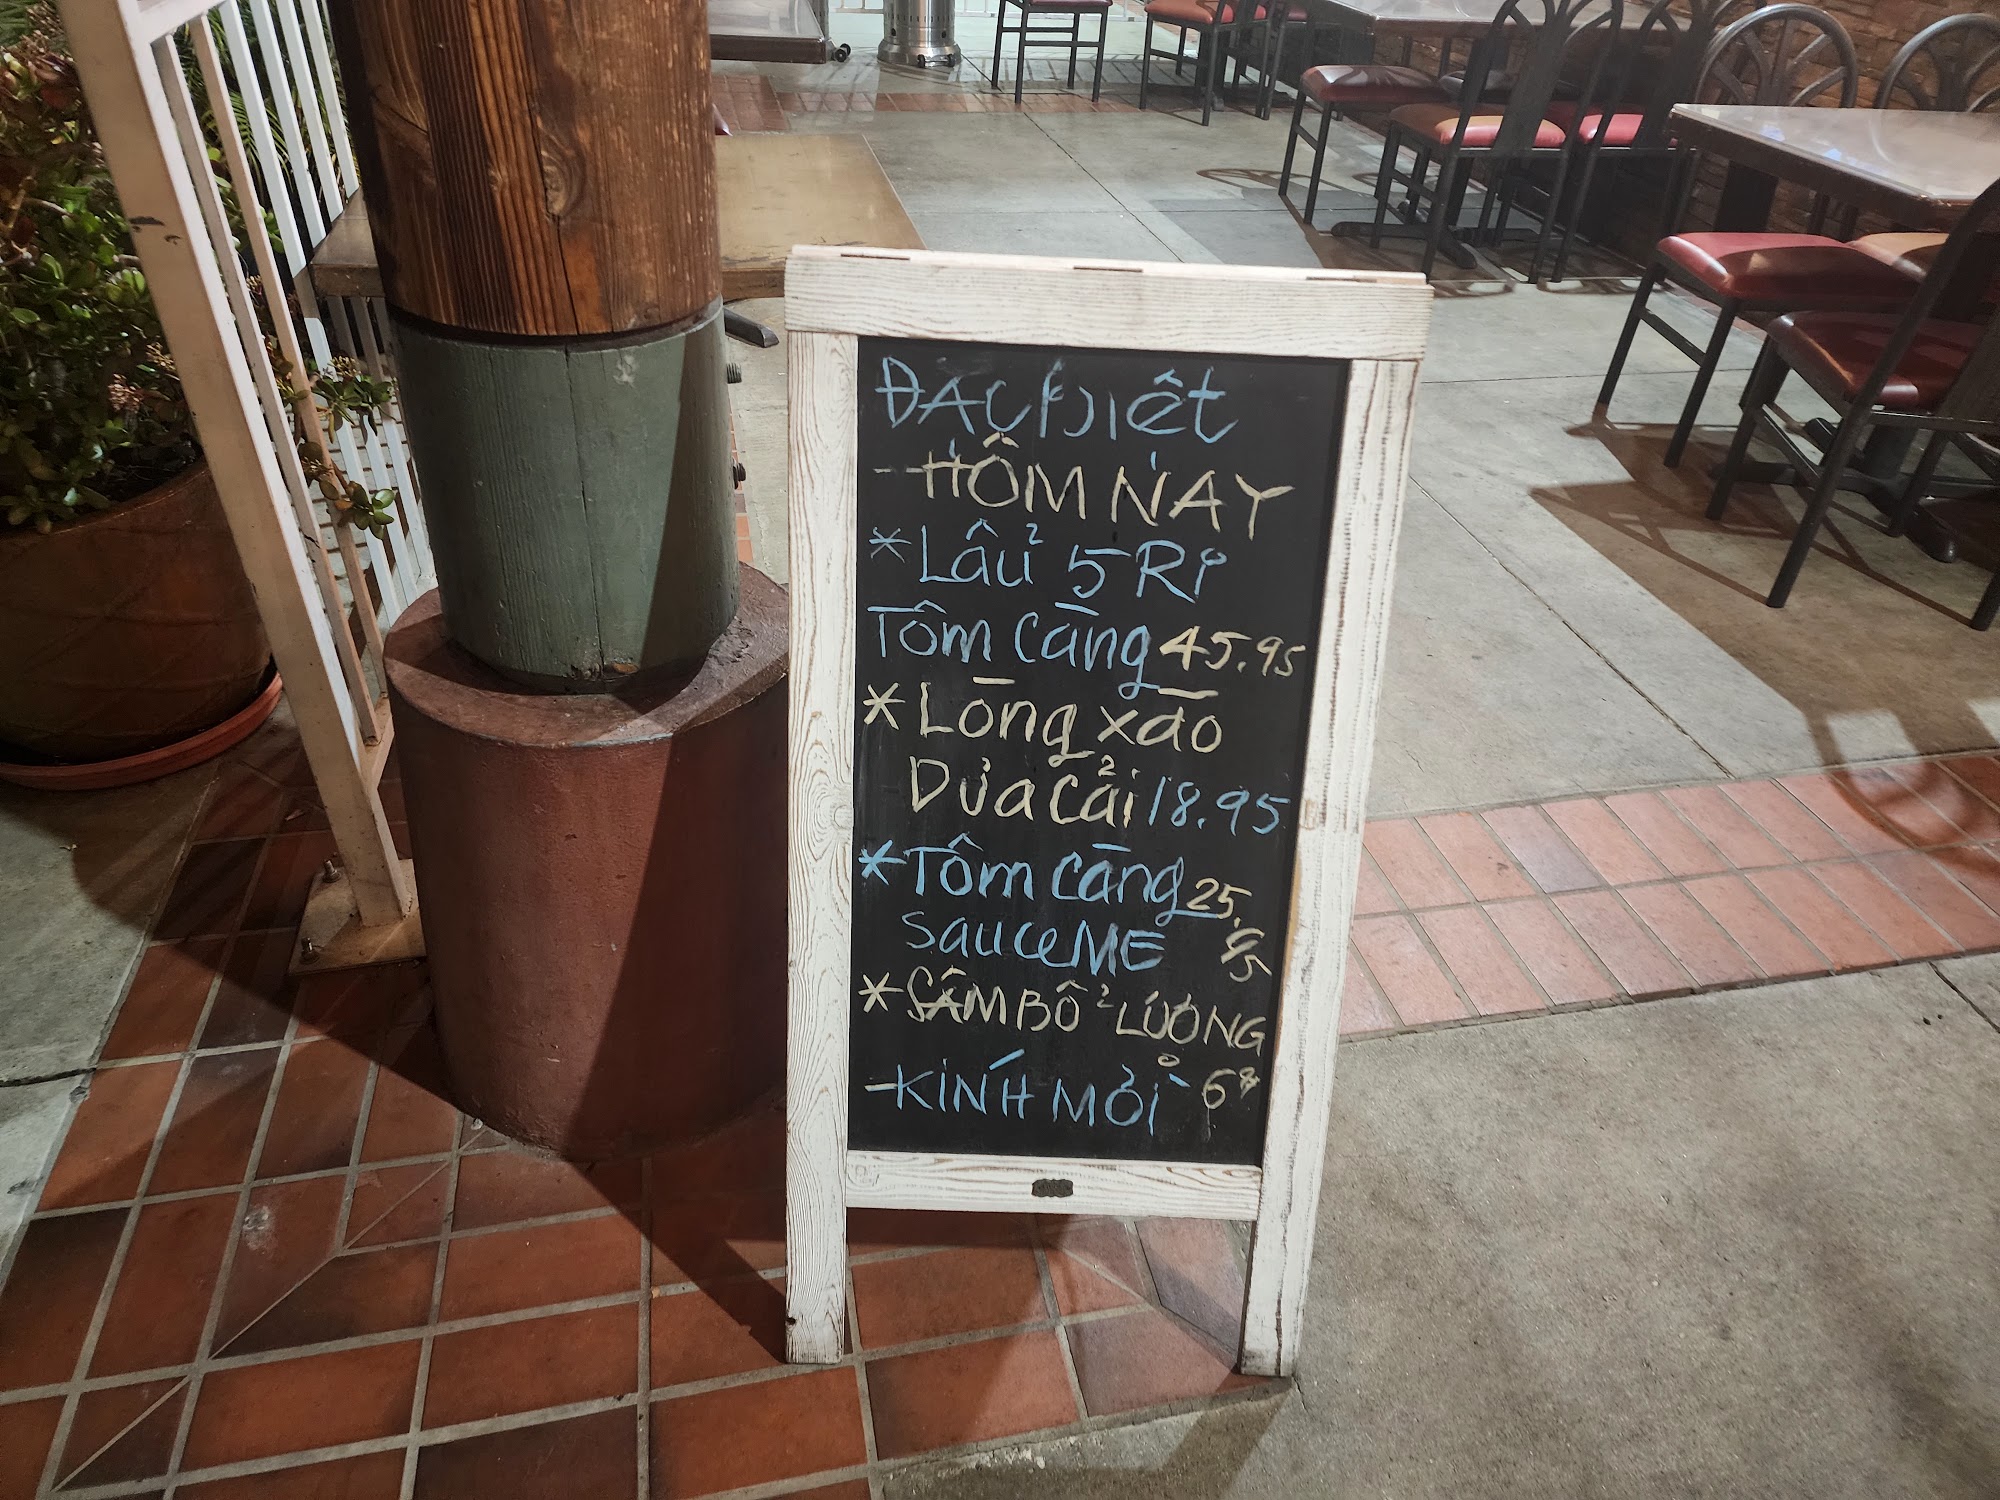 ĐẶC BIỆT
- HÔM NAY
* Lẩu 5 Ri
Tôm Càng 45.95
* Lòng xào
Dưa Cải 18.95
* Tôm Càng 25.
Sauce ME 95
* SÂM BỔ LƯỢNG
- KÍNH MỜI 6